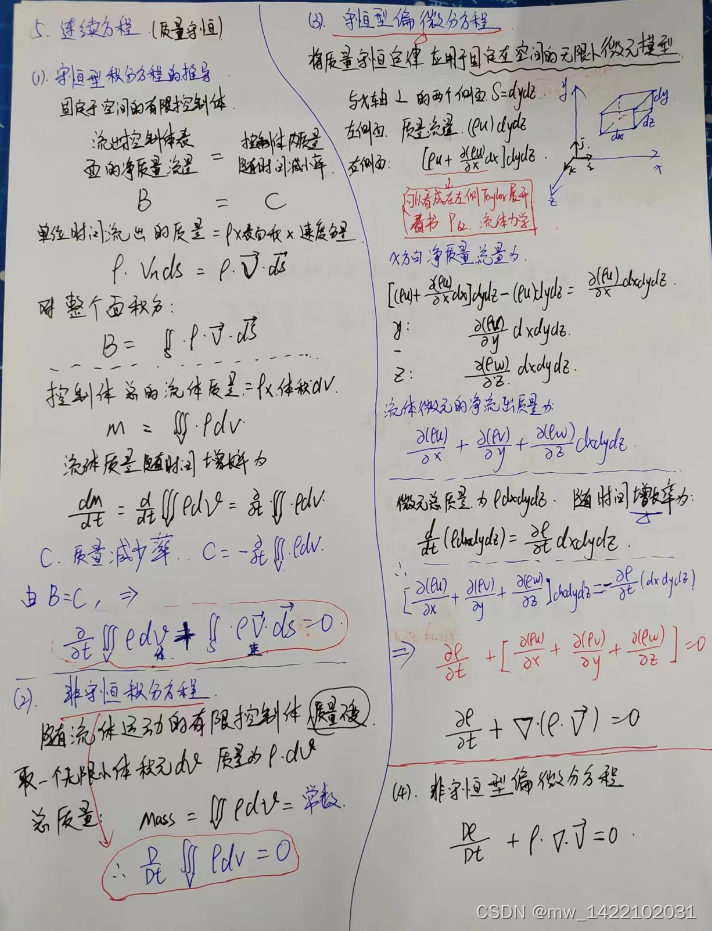 5. 连续方程 (质量守恒)
(1). 守恒型积分方程的推导
固定于空间的有限控制体
流出控制体表面的净质量流量 = 控制体内质量随时间减小率
B = C
单位时间流出的质量 = ρ×表面积×速度分量
ρ·Vnds = ρ·V⃗·ds⃗
对整个面积分:
B = ∬s ρ·V⃗·ds⃗
控制体总的流体质量 = ρ×体积dv.
m = ∭ρdv.
流体质量随时间增加率为
dm/dt = d/dt∭ρdv = ∂/∂t∭ρdv.
C. 质量减少率. C = -∂/∂t∭ρdv.
由 B=C, ⇒
∂/∂t∭ρdv + ∬s ρV⃗·ds⃗ = 0
体 面
(2). 非守恒积分方程
随流体运动的有限控制体 质量不变.
取一个无限小体积元dv. 质量为ρ·dv
总质量: mass = ∭ρdv = 常数.
∴ D/Dt∭ρdv = 0
(3). 守恒型偏微分方程
将质量守恒定律应用于固定在空间的无限小微元模型.
与x轴⊥的两个侧面. S=dydz
左侧面. 质量流量. (ρu)dydz
右侧面: [ρu + ∂(ρu)/∂x dx]dydz.
y dy dz dx j i k x z
可以看成在左侧Taylor展开
看书 P62. 流体力学
x方向净质量流量为.
[(ρu)+∂(ρu)/∂x dx]dydz-(ρu)dydz = ∂(ρu)/∂x dxdydz.
y: ∂(ρv)/∂y dxdydz.
z: ∂(ρw)/∂z dxdydz.
流体微元的净流出质量为:
∂(ρu)/∂x + ∂(ρv)/∂y + ∂(ρw)/∂z dxdydz.
微元总质量为ρdxdydz. 随时间增加率为:
d/dt(ρdxdydz) = ∂ρ/∂t dxdydz.
∴ [∂(ρu)/∂x + ∂(ρv)/∂y + ∂(ρw)/∂z]dxdydz = -∂ρ/∂t(dxdydz)
⇒ ∂ρ/∂t + [∂(ρu)/∂x + ∂(ρv)/∂y + ∂(ρw)/∂z] = 0
∂ρ/∂t + ∇·(ρ·V⃗) = 0
(4). 非守恒型偏微分方程
Dρ/Dt + ρ·∇·V⃗ = 0.
CSDN @mw_1422102031